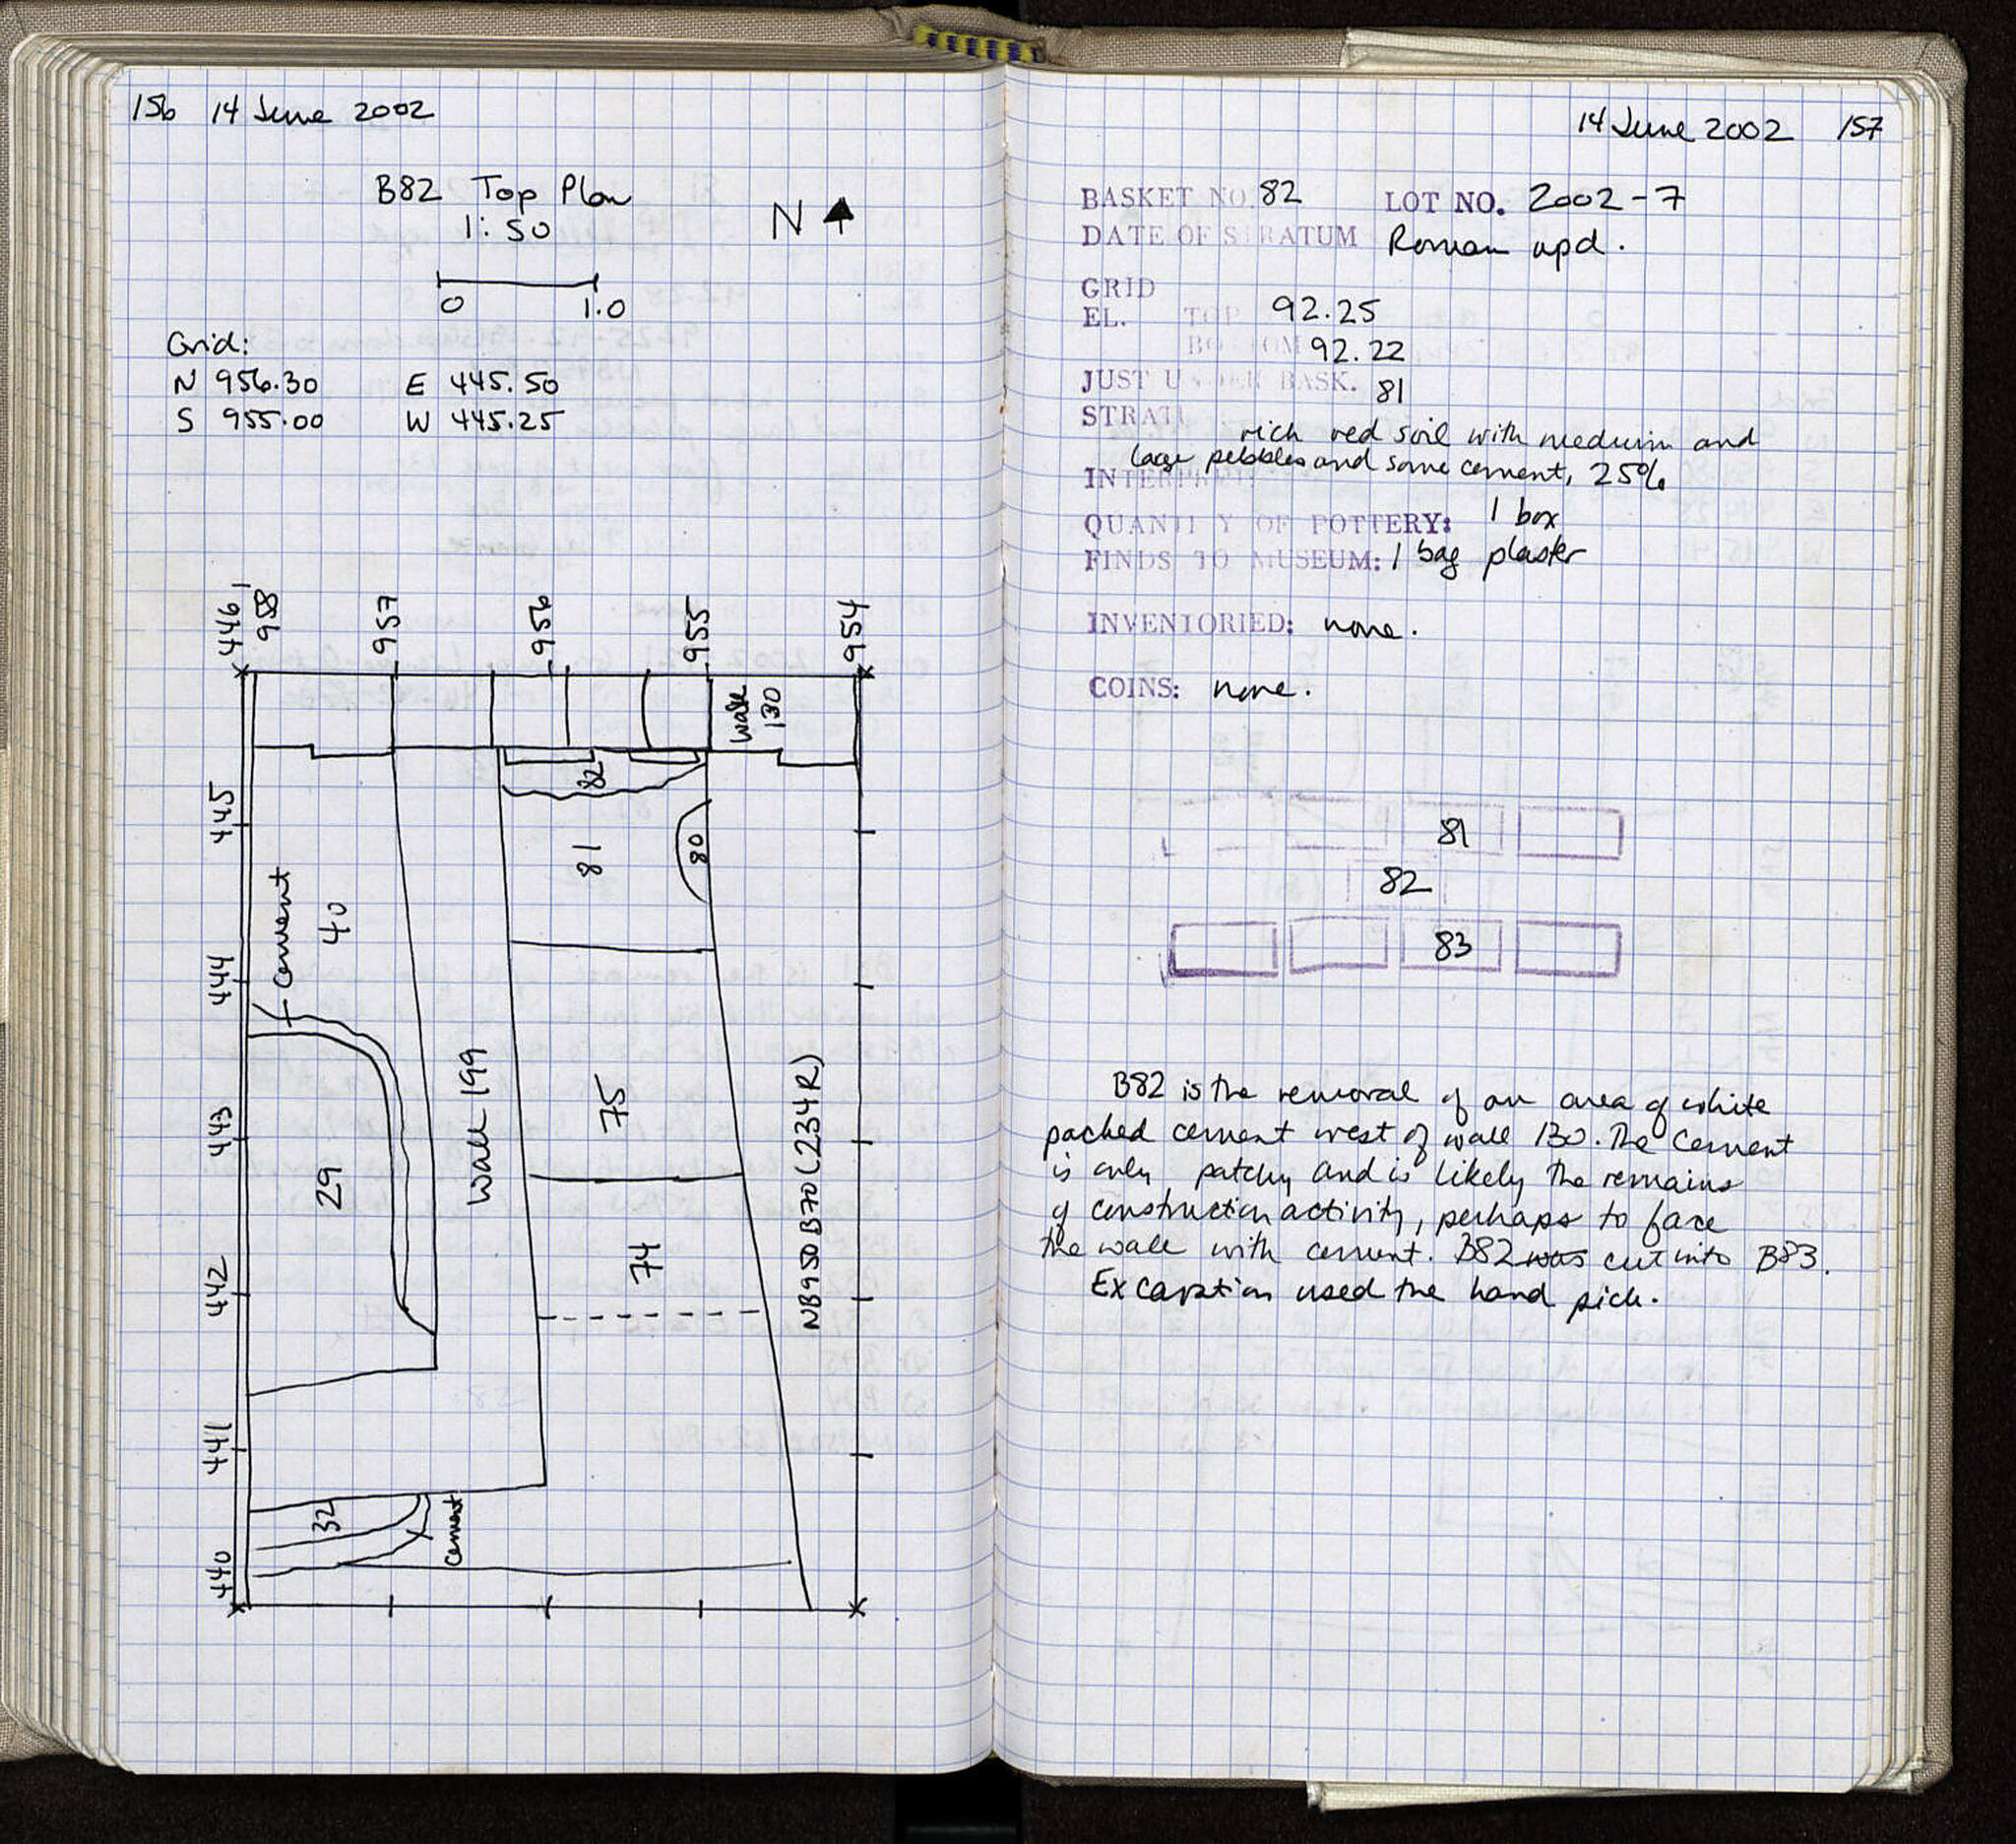 156 14 June 2002
B82 Top Plan
1:50
N
0 1.0
Grid:
N 956.30 E 445.50
S 955.00 W 445.25
446 958 957 956 955 954
Wall 130
82
445
81
80
cement
40
444
Wall 199
75
NB950 B70 (234R)
443
29
74
442
441
32
cement
440
14 June 2002 157
BASKET NO. 82 LOT NO. 2002-7
DATE OF STRATUM Roman upd.
GRID
EL. TOP 92.25
BOTTOM 92.22
JUST UNDER BASK. 81
STRAT
rich red soil with medium and
large pebbles and some cement, 25%
INTERPRET:
QUANTITY OF POTTERY: 1 box
FINDS TO MUSEUM: 1 bag plaster
INVENTORIED: none.
COINS: none.
81
82
83
B82 is the removal of an area of white
packed cement west of wall 130. The cement
is only patchy and is likely the remains
of construction activity, perhaps to face
the wall with cement. B82 was cut into B83.
Excavation used the hand pick.